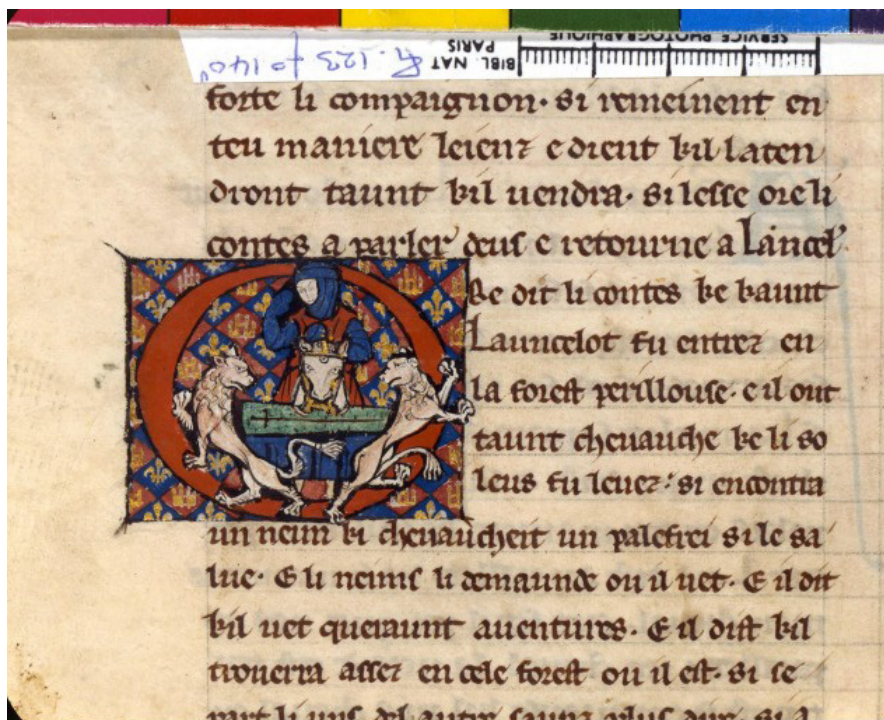 SERVICE PHOTOGRAPHIQUE
BIBL. NAT
PARIS
fr. 123 fo 140v
forte li compaignon. si remeinent en
teu maniere leienz e dient kil laten
dront taunt kil uendra. si lesse ore li
contes a parler deus e retourne a Lancel'
Ore dit li contes ke kaunt
Launcelot fu entrez en
la forest perillouse. e il out
taunt cheuauche ke li so
leus fu leuez. si encontra
un neim ki cheuaucheit un palefrei si le sa
lue. E li neims li demaunde ou il uet. E il dit
kil uet queraunt auentures. E il dist kil
trouerra assez en cele forest ou il est. si se
part li uns del autre saunz plus dire. si